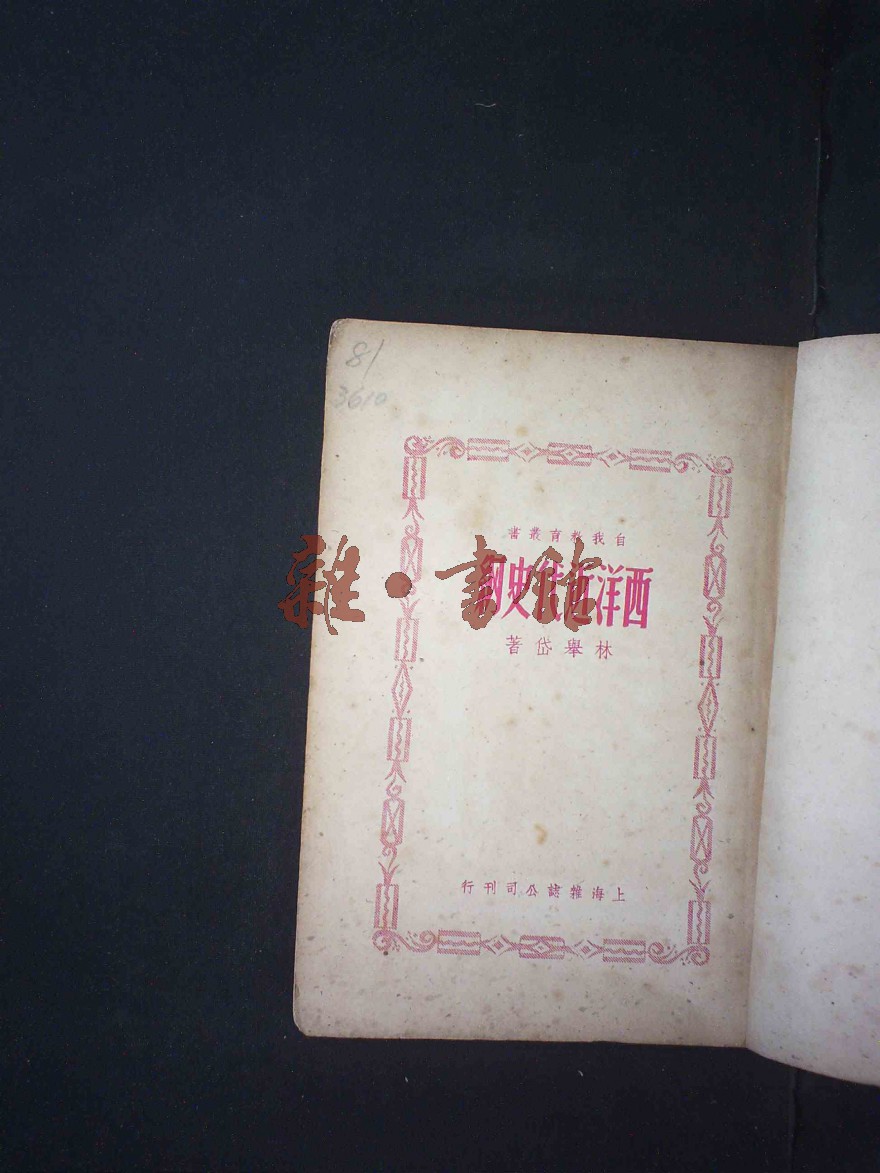 81
3610
自我教育叢書
西洋近代史綱
林舉岱著
上海雜誌公司刊行
雜·書館